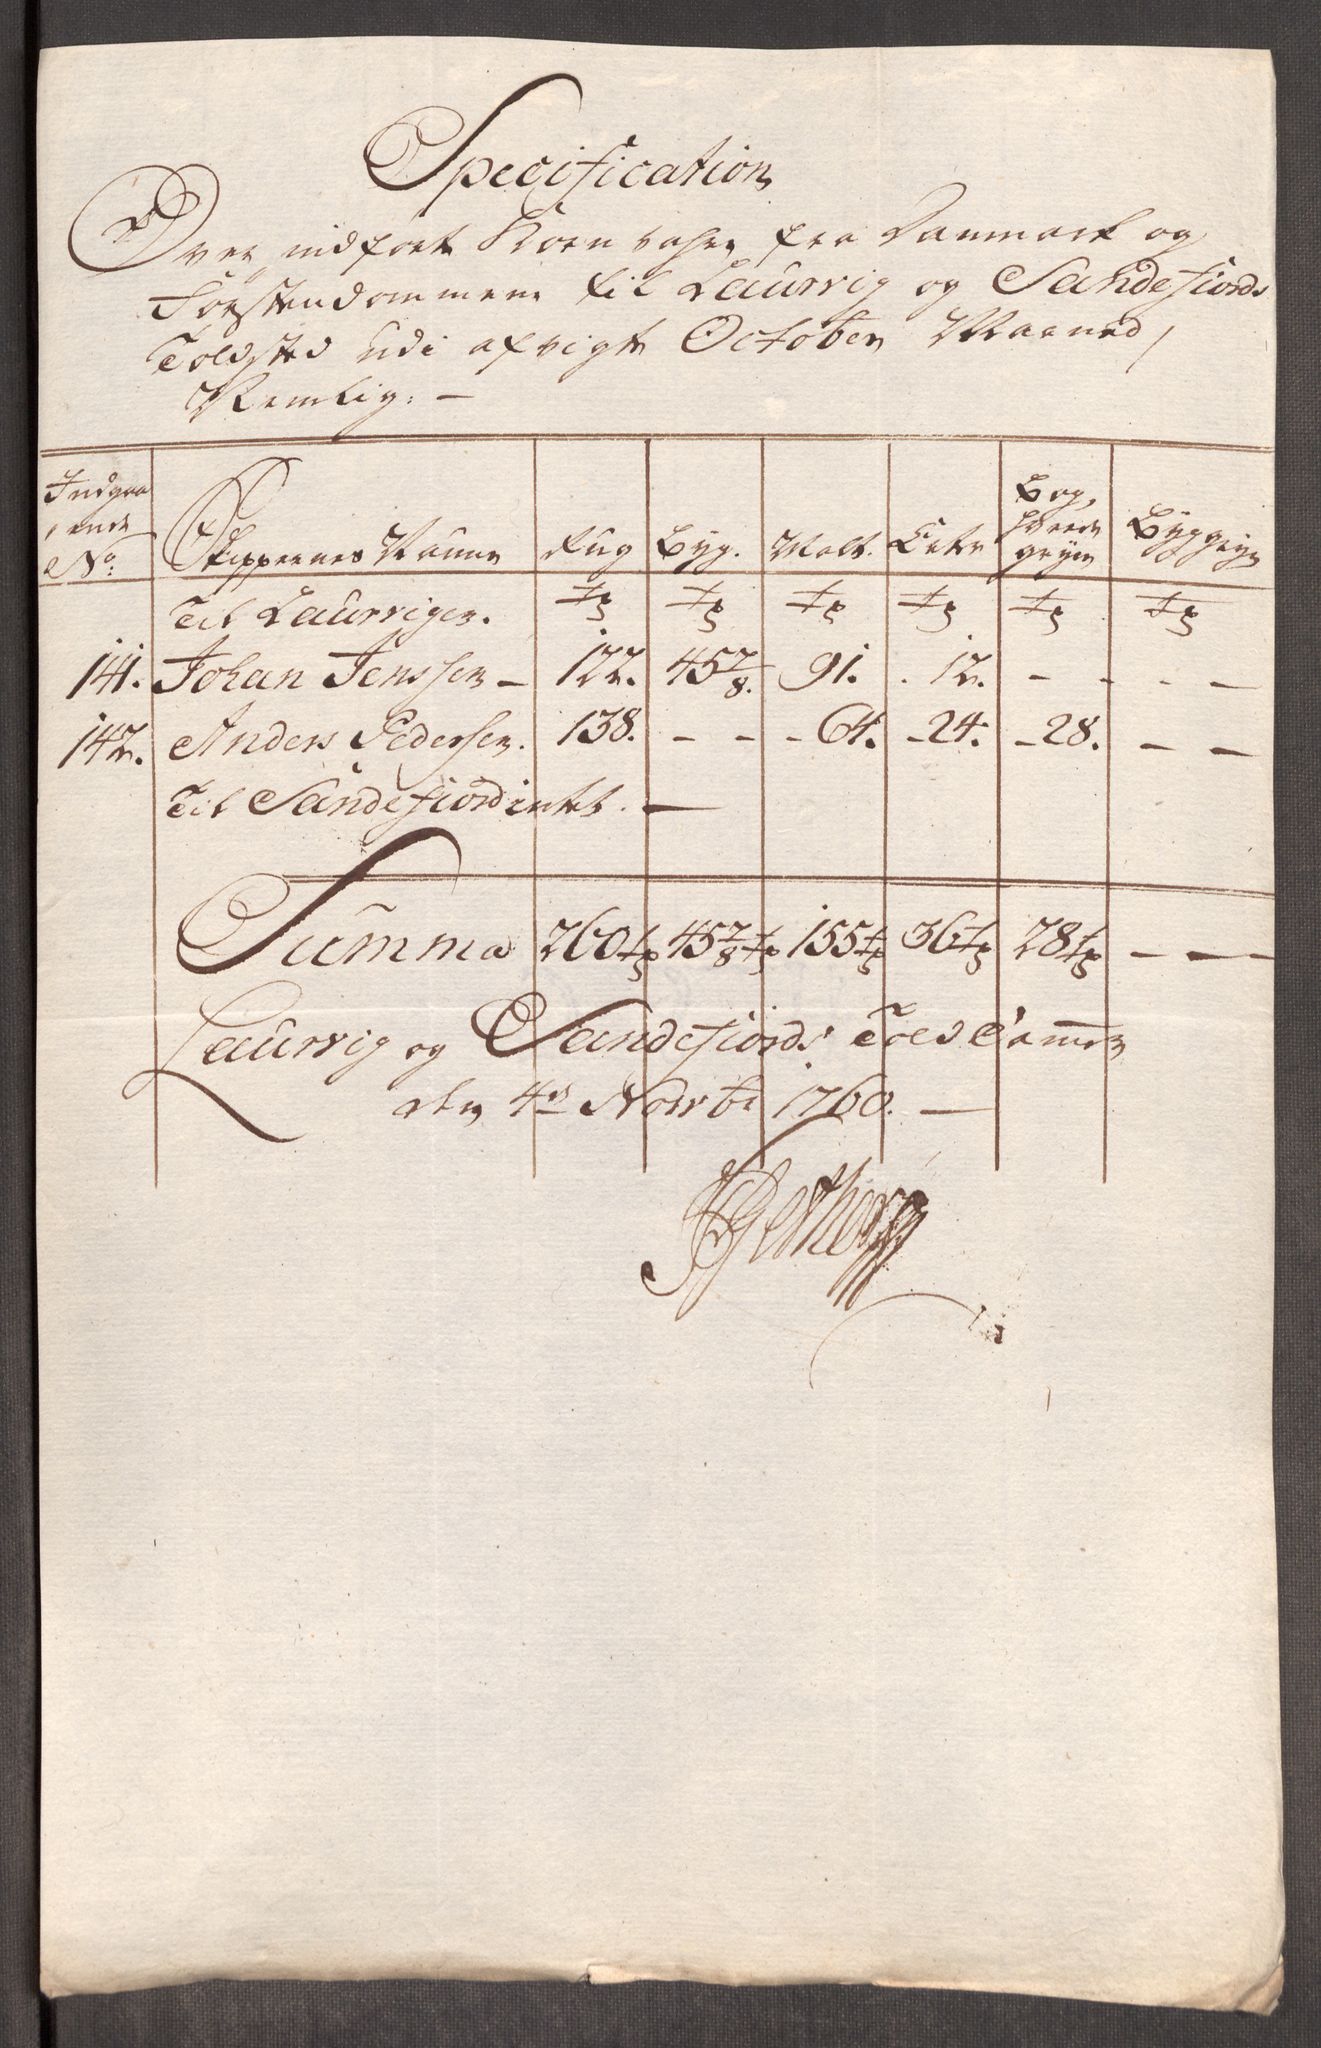 Specification
Over indført Korn vahre fra Danmark og
Førstendommene til Laurvig og Sandefiords
Toldsted udi afvigte October Maaned,
Nemlig: —
Indgaa
ende
No: Skippernes Nafne Rug Byg. Malt. Erter Bog,
hvede
gryn Byggryn
Til Laurvigen. Tr Tr Tr Tr Tr Tr
141. Johan Jenssen — 122. 45 7/8. 91. . 12. - - - -
142. Anders Pedersen. 138. - - - 64. - 24. - 28. - -
Til Sandefiord intet. —
Summa 260 Tr 45 7/8 Tr 155 Tr 36 Tr 28 Tr - —
Laurvig og Sandefiords Told Cammer
den 4de Novrbr 1760. —